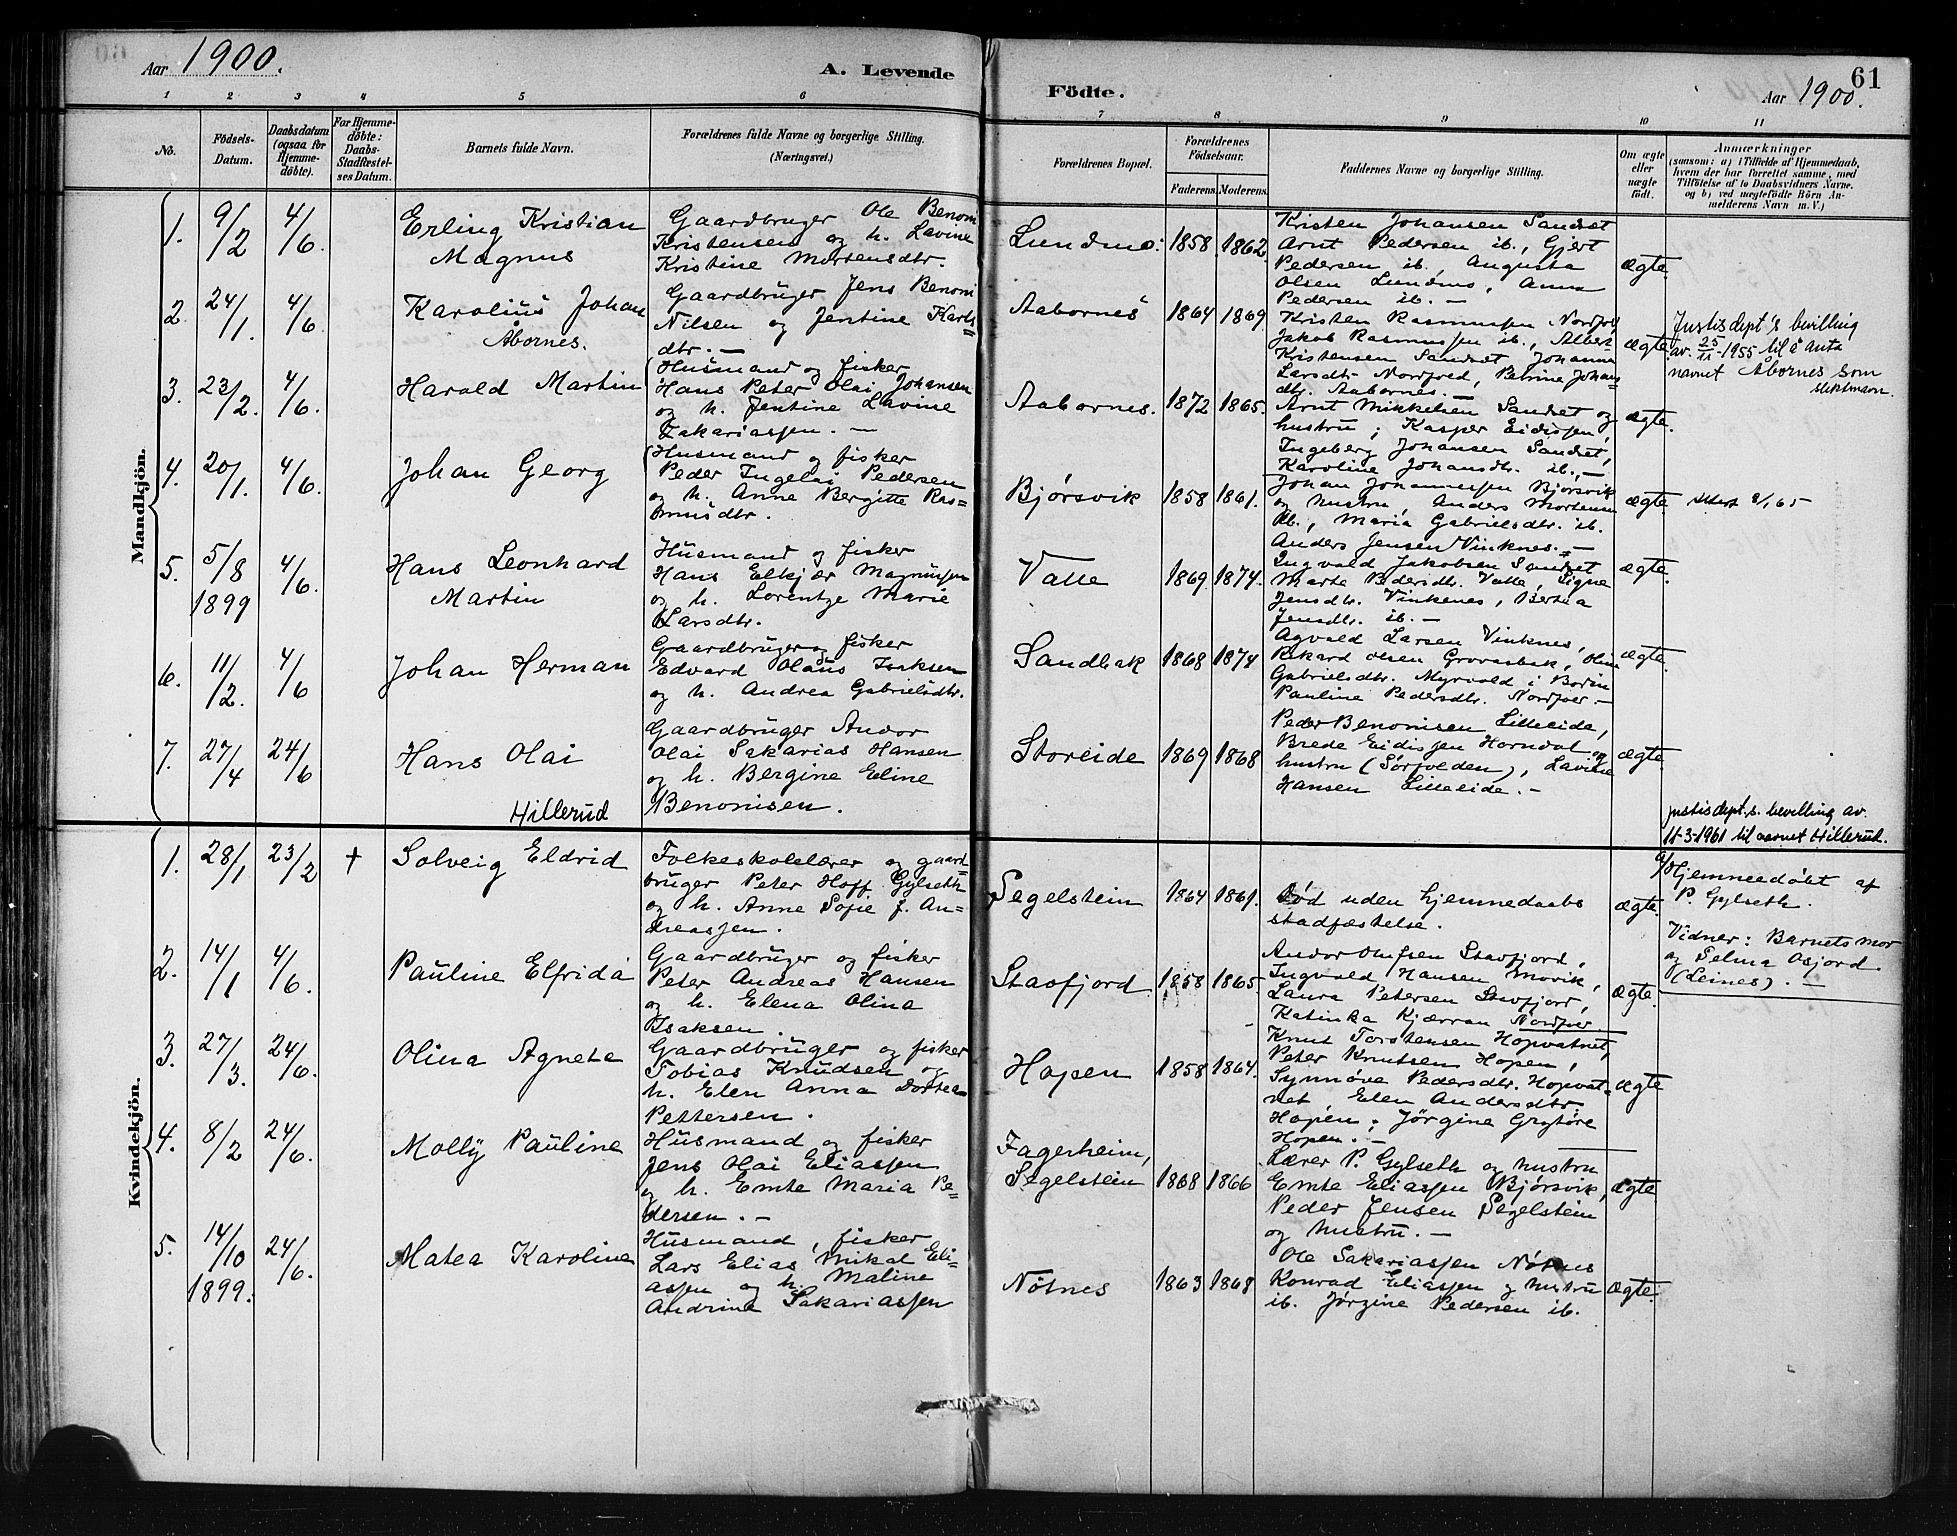 60
Aar 1900.
A. Levende
Födte.
Aar 1900.
61
1 2 3 4 5 6 7 8 9 10 11
No.
Födsels-Datum.
Daabsdatum (ogsaa for Hjemmedöbte).
For Hjemmedöbte: Daabs-Stadfæstelses Datum.
Barnets fulde Navn.
Forældrenes fulde Navne og borgerlige Stilling.
(Næringsvei.)
Forældrenes Bopæl.
Forældrenes Födselsaar.
Faderens. Moderens.
Faddernes Navne og borgerlige Stilling.
Om ægte eller uægte födt.
Anmærkninger
(saasom: a) i Tilfælde af Hjemmedaab,
hvem der har forrettet samme, med
Tilföielse af to Daabsvidners Navne.
og b) ved uægtefödte Börn Anmelderens Navn m. V.)
Mandkjön.
1. 9/2 4/6. Erling Kristian
Magnus
Gaardbruger Ole Benoni
Kristensen og h. Lavine
Kristine Mortensdtr.
Lundmo: 1858 1862
Kristen Johansen Sandset
Arnt Pedersen ib., Gjert
Pedersen ib., Augusta
Olsen Lundmo, Anna
Pedersen ib. —
ægte
2. 24/1. 4/6 Karolius Johan
Åbornes.
Gaardbruger Jens Benoni
Nilsen og Jentine Karls=
dtr. —
Aabornes 1864 1869
Kristen Rasmussen Nordfjor
Jakob Rasmussen ib., Albert
Kristensen Sandset, Johanna
Larsdtr. Nordfjord, Petrine Johans
dtr. Aabornes. —
ægte
Justisdept's bevilling
av. 25/11-1955 til å anta
navnet Åbornes som
slektsnavn.
3. 23/2. 4/6. Harald Martin
Husmand og fisker
Hans Peter Olai Johansen
og h. Jentine Lavine
Zakariassen. —
Aabornes. 1872 1865.
Arnt Mikkelsen Sandset og
hustru, Kasper Eidissen,
Ingeberg Johansen Sandset,
Karoline Johansdtr. ib. —
ægte.
4. 20/1. 4/6. Johan Georg
Husmand og fisker
Peder Ingelai Pedersen
og h. Anne Bergitte Ras=
musdtr.
Bjørsvik 1858 1861.
Johan Johannessen Bjørsvik
og hustru, Anders Mortensen
ib., Maria Gabrielsdtr. ib.
Anders Jensen Vinknes. —
ægte.
Attest 2/1 65
5. 5/8 1899 4/6. Hans Leonhard
Martin
Husmand og fisker
Hans Elkjær Magnussen
og h. Lorentze Marie
Larsdtr.
Vatte 1869 1874.
Ingvald Jakobsen Sandset
Marte Pedersdtr. Vatte, Signe
Jensdtr. Vinkenes, Bertha
Jensdtr. ib. —
ægte.
6. 11/2. 4/6 Johan Herman
Gaardbruger og fisker
Edvard Olaus Isaksen
og h. Andrea Gabrielsdtr.
Sandbak 1868 1874
Agvald Larsen Vinknes,
Rikard Olsen Grovasbak, Olina
Gabrielsdtr. Myrvold i Bodin
Pauline Pedersdtr. Nordfjor. —
ægte.
7. 27/4 24/6 Hans Olai
Hillerud
Gaardbruger Andor
Olai Sakarias Hansen
og h. Bergine Eline
Benonisen.
Storeide 1869 1868
Peder Benonisen Lilleeide,
Brede Eidissen Horndal og
hustru (Sørfolden), Lavine
Hansen Lilleeide. —
ægte.
justisdept.s. bevilling av.
11-3-1961 til navnet Hillerud.
Kvindekjön.
1. 28/1 23/2 + Solveig Eldrid
Folkeskolelærer og gaard
bruger Peter Hoff Gylseth
og h. Anne Sofie f. An=
dreassen.
Segelstein 1864 1861.
Død uden hjemmedaabs
stadfæstelse.
ægte.
a/ Hjemmedøbt af
P. Gylseth.
Vidner: Barnets mor
og Selma Asjord
(Leines). —
2. 14/1 4/6. Pauline Elfrida
Gaardbruger og fisker
Peter Andreas Hansen
og h. Elena Olina
Isaksen.
Stavfjord 1858 1865.
Andor Olufsen Stavfjord,
Ingvald Hansen Movik,
Laura Petersen Stavfjord,
Katinka Kjærran Nordfjor.
ægte.
3. 27/3. 24/6. Olina Agneta
Gaardbruger og fisker
Tobias Knudsen og
h. Elen Anna Dortea
Pettersen.
Hopen 1858 1864.
Knut Torstensen Hopvatnet,
Peter Knutsen Hopen,
Synnøve Pedersdtr. Hopvat=
net, Elen Andersdtr
Hopen, Jørgine Grytøre
Hopen. —
ægte
4. 8/2 24/6. Molly Pauline
Husmand og fisker
Jens Olai Eliassen
og h. Emte Maria Pe=
dersen. —
Fagerheim,
Segelstein 1868 1866
Lærer P. Gylseth og hustru
Emte Eliassen Bjørsvik,
Peder Jensen Segelstein
og hustru. —
ægte
5. 14/10 1899. 24/6. Matea Karoline
Husmand, fisker
Lars Elias Mikal Eli=
assen og h. Maline
Andrine Sakariassen
Nøtnes 1863 1868
Ole Sakariassen Nøtnes
Konrad Eliassen og hustru
ib. Jørgine Pedersen ib.
ægte.